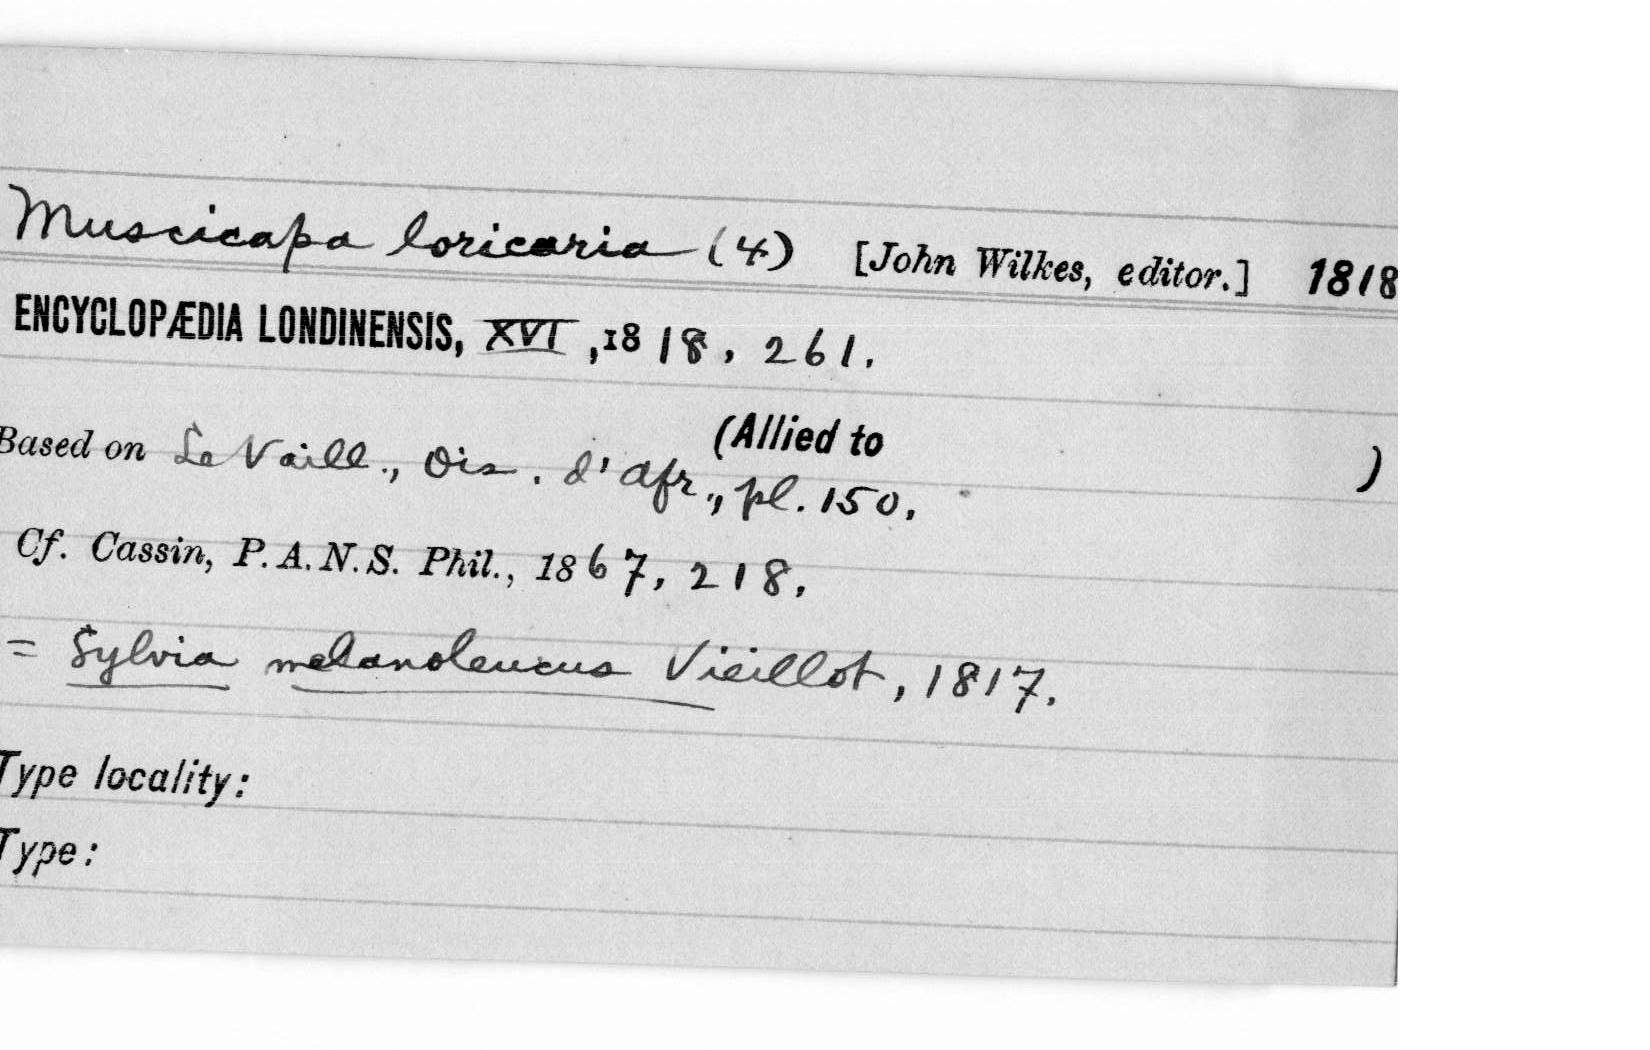 Muscicapa loricaria (4) [John Wilkes, editor.] 1818
ENCYCLOPÆDIA LONDINENSIS, XVI, 1818, 261.
(Allied to )
Based on Le Vaill., Ois. d'Afr., pl. 150.
Cf. Cassin, P. A. N. S. Phil., 1867, 218.
= Sylvia melanoleucus Vieillot, 1817.
Type locality:
Type: